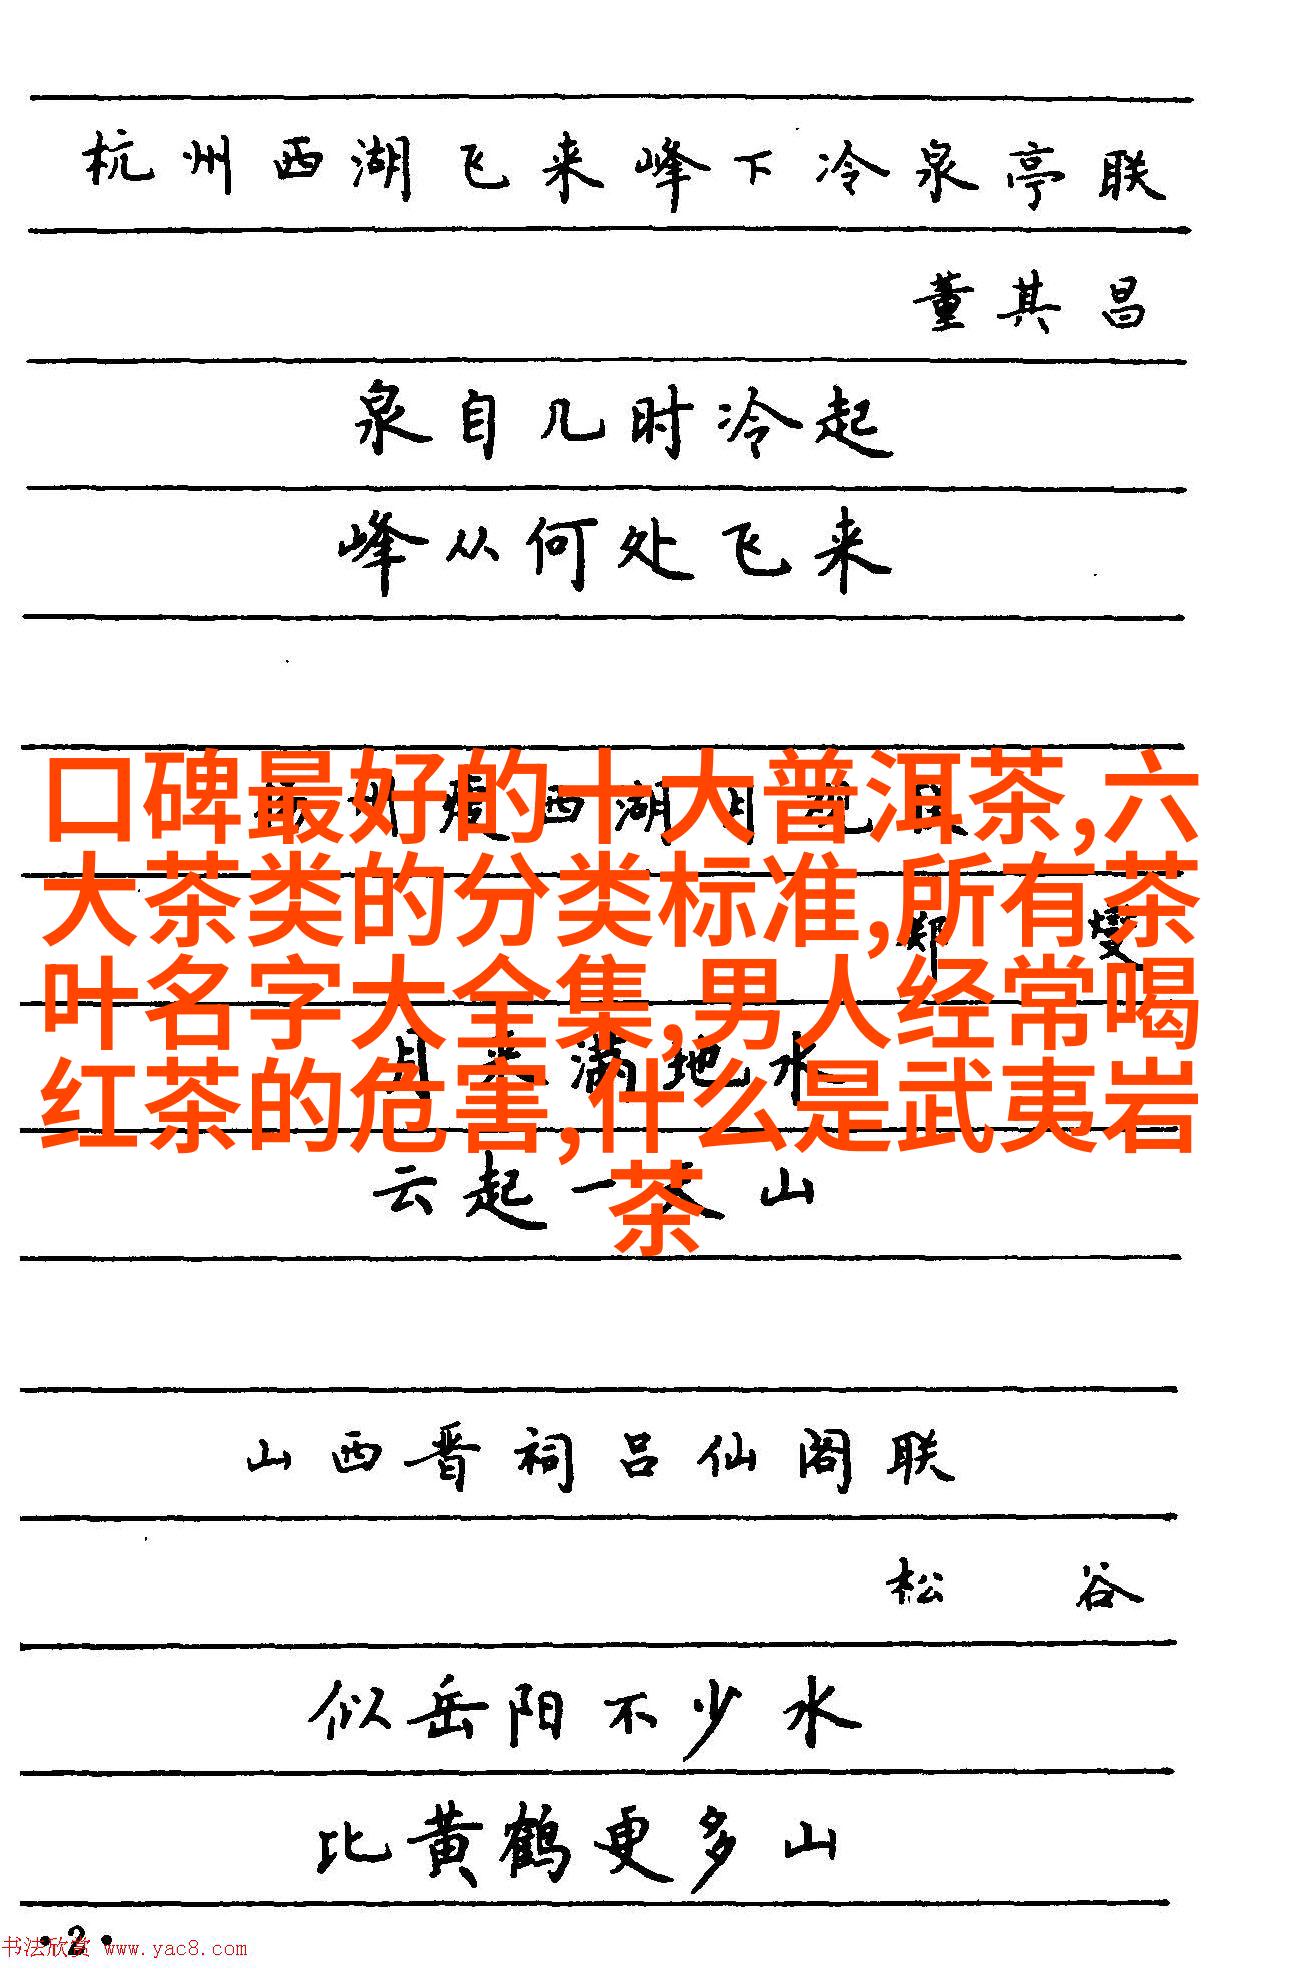 杭州西湖飞来峰下冷泉亭联
董其昌
泉自几时冷起
峰从何处飞来
口碑最好的十大普洱茶,六
大茶类的分类标准,所有茶
叶名字大全集,男人经常喝
红茶的危害,什么是武夷岩
茶
西湖月观
郑燮
月来满地水
云起一天山
山西晋祠吕仙阁联
松谷
似岳阳不少水
比黄鹤更多山
·2·
书法欣赏 www.yac8.com